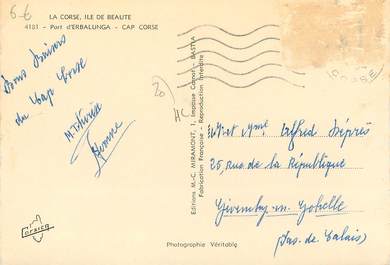 LA CORSE, ILE DE BEAUTE
4181 - Port d'ERBALUNGA - CAP CORSE
Bons Baisers
du Cap Corse
Editions M.-C. MIRAMONT, 1, Impasse Carnot - BASTIA
Fabrication Française - Reproduction Interdite
20
HC
M. et Mme Alfred Déprès
25, rue de la République
Givenchy-en-Gohelle
(Pas-de-Calais)
CORSICA
Photographie Véritable